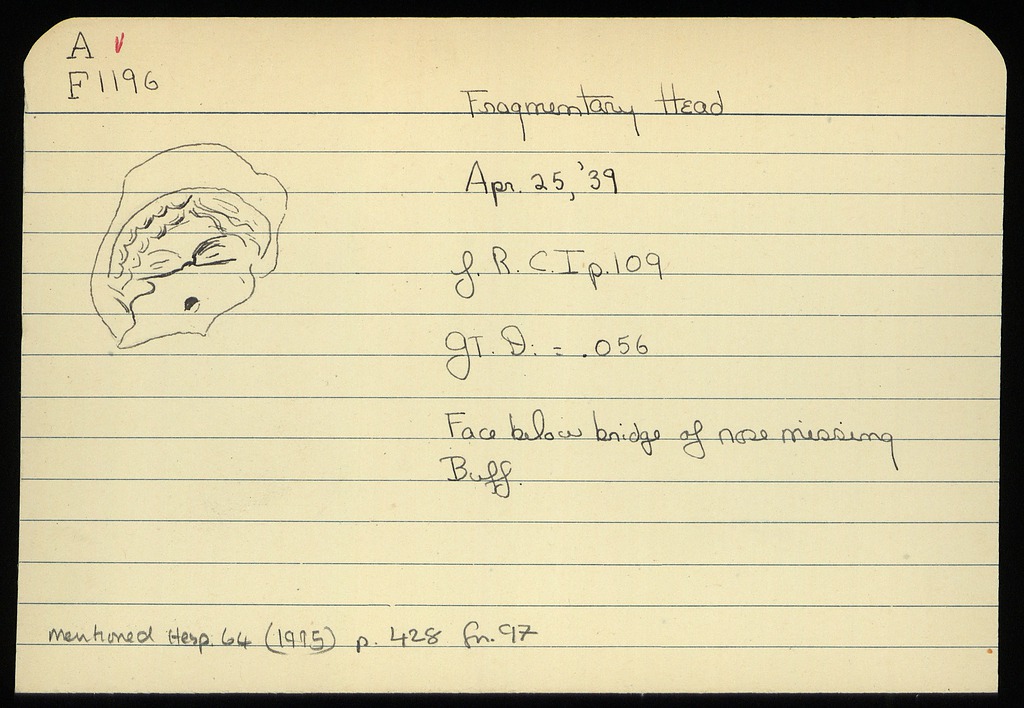 A V
F 1196
Fragmentary Head
Apr. 25, '39
J. R. C. I p. 109
GT. D. = .056
Face below bridge of nose missing
Buff.
mentioned Hesp. 64 (1995) p. 428 fn. 97